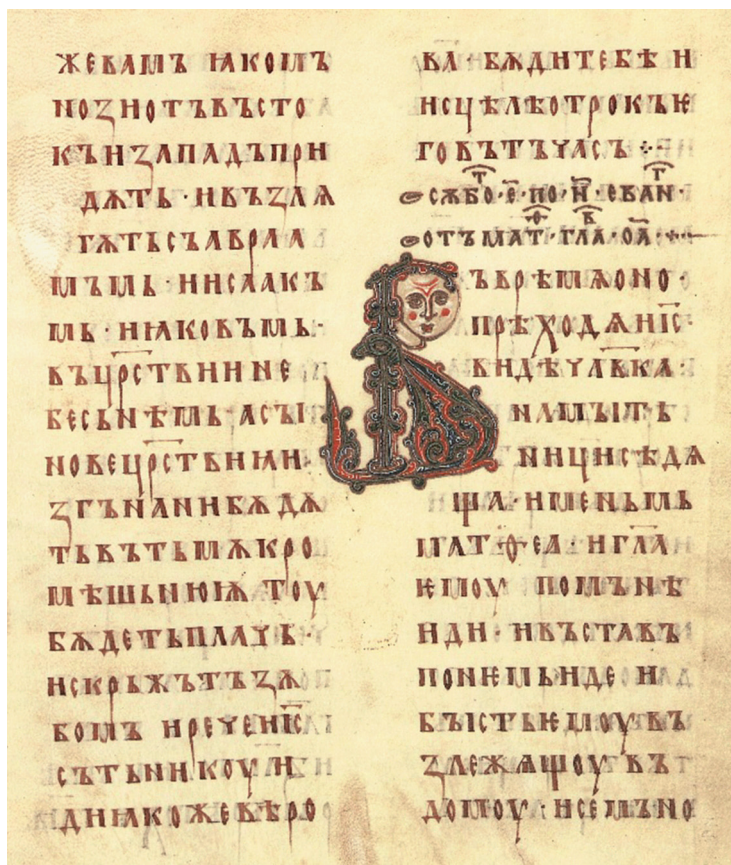 жевамъ ꙗкомъ
ноꙁиотъвъсто
къиꙁападъпри
дѫть · ивъꙁлѧ
гѫтьсъавраа
мъмь · иисаакъ
мь · иꙗковъмь ·
въцр҃ствиине
бесьнѣмь · асꙑ
новецр҃ствиꙗи
ꙁгънаниբѫдѫ
тьвътьмѫкро
мѣшьнюѭ тоу
бѫдетьплачь
искрьжьтъꙁѫ
бомъ иречеис҃
сътьникоу и
диꙗкожевѣро
ва · бѫдитебѣ и
ицѣлѣотрокъѥ
говътъчасъ ⁘
сѫбо · е҃ · по · н҃ · еваⷩ ·
отъмат · гла · о҃а ·
Въврѣмѧоно ·
прѣходѧиис҃ ·
видѣчл҃вка ·
намꙑтѣ
ницисѣдѧ
ща · именьмь
матѳеа · игл҃а
ѥмоу помънѣ
иди · ивъставъ
понемьиде и
бꙑстьѥмоувъ
ꙁлежѧщоу въ
домоу · исемъно